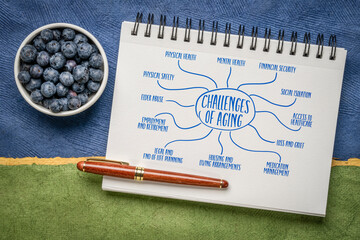 PHYSICAL HEALTH
MENTAL HEALTH
FINANCIAL SECURITY
PHYSICAL SAFETY
SOCIAL ISOLATION
ELDER ABUSE
CHALLENGES
OF AGING
ACCESS TO
HEALTHCARE
EMPLOYMENT
AND RETIREMENT
LOSS AND GRIEF
LEGAL AND
END OF LIFE PLANNING
HOUSING AND
LIVING ARRANGEMENTS
MEDICATION
MANAGEMENT